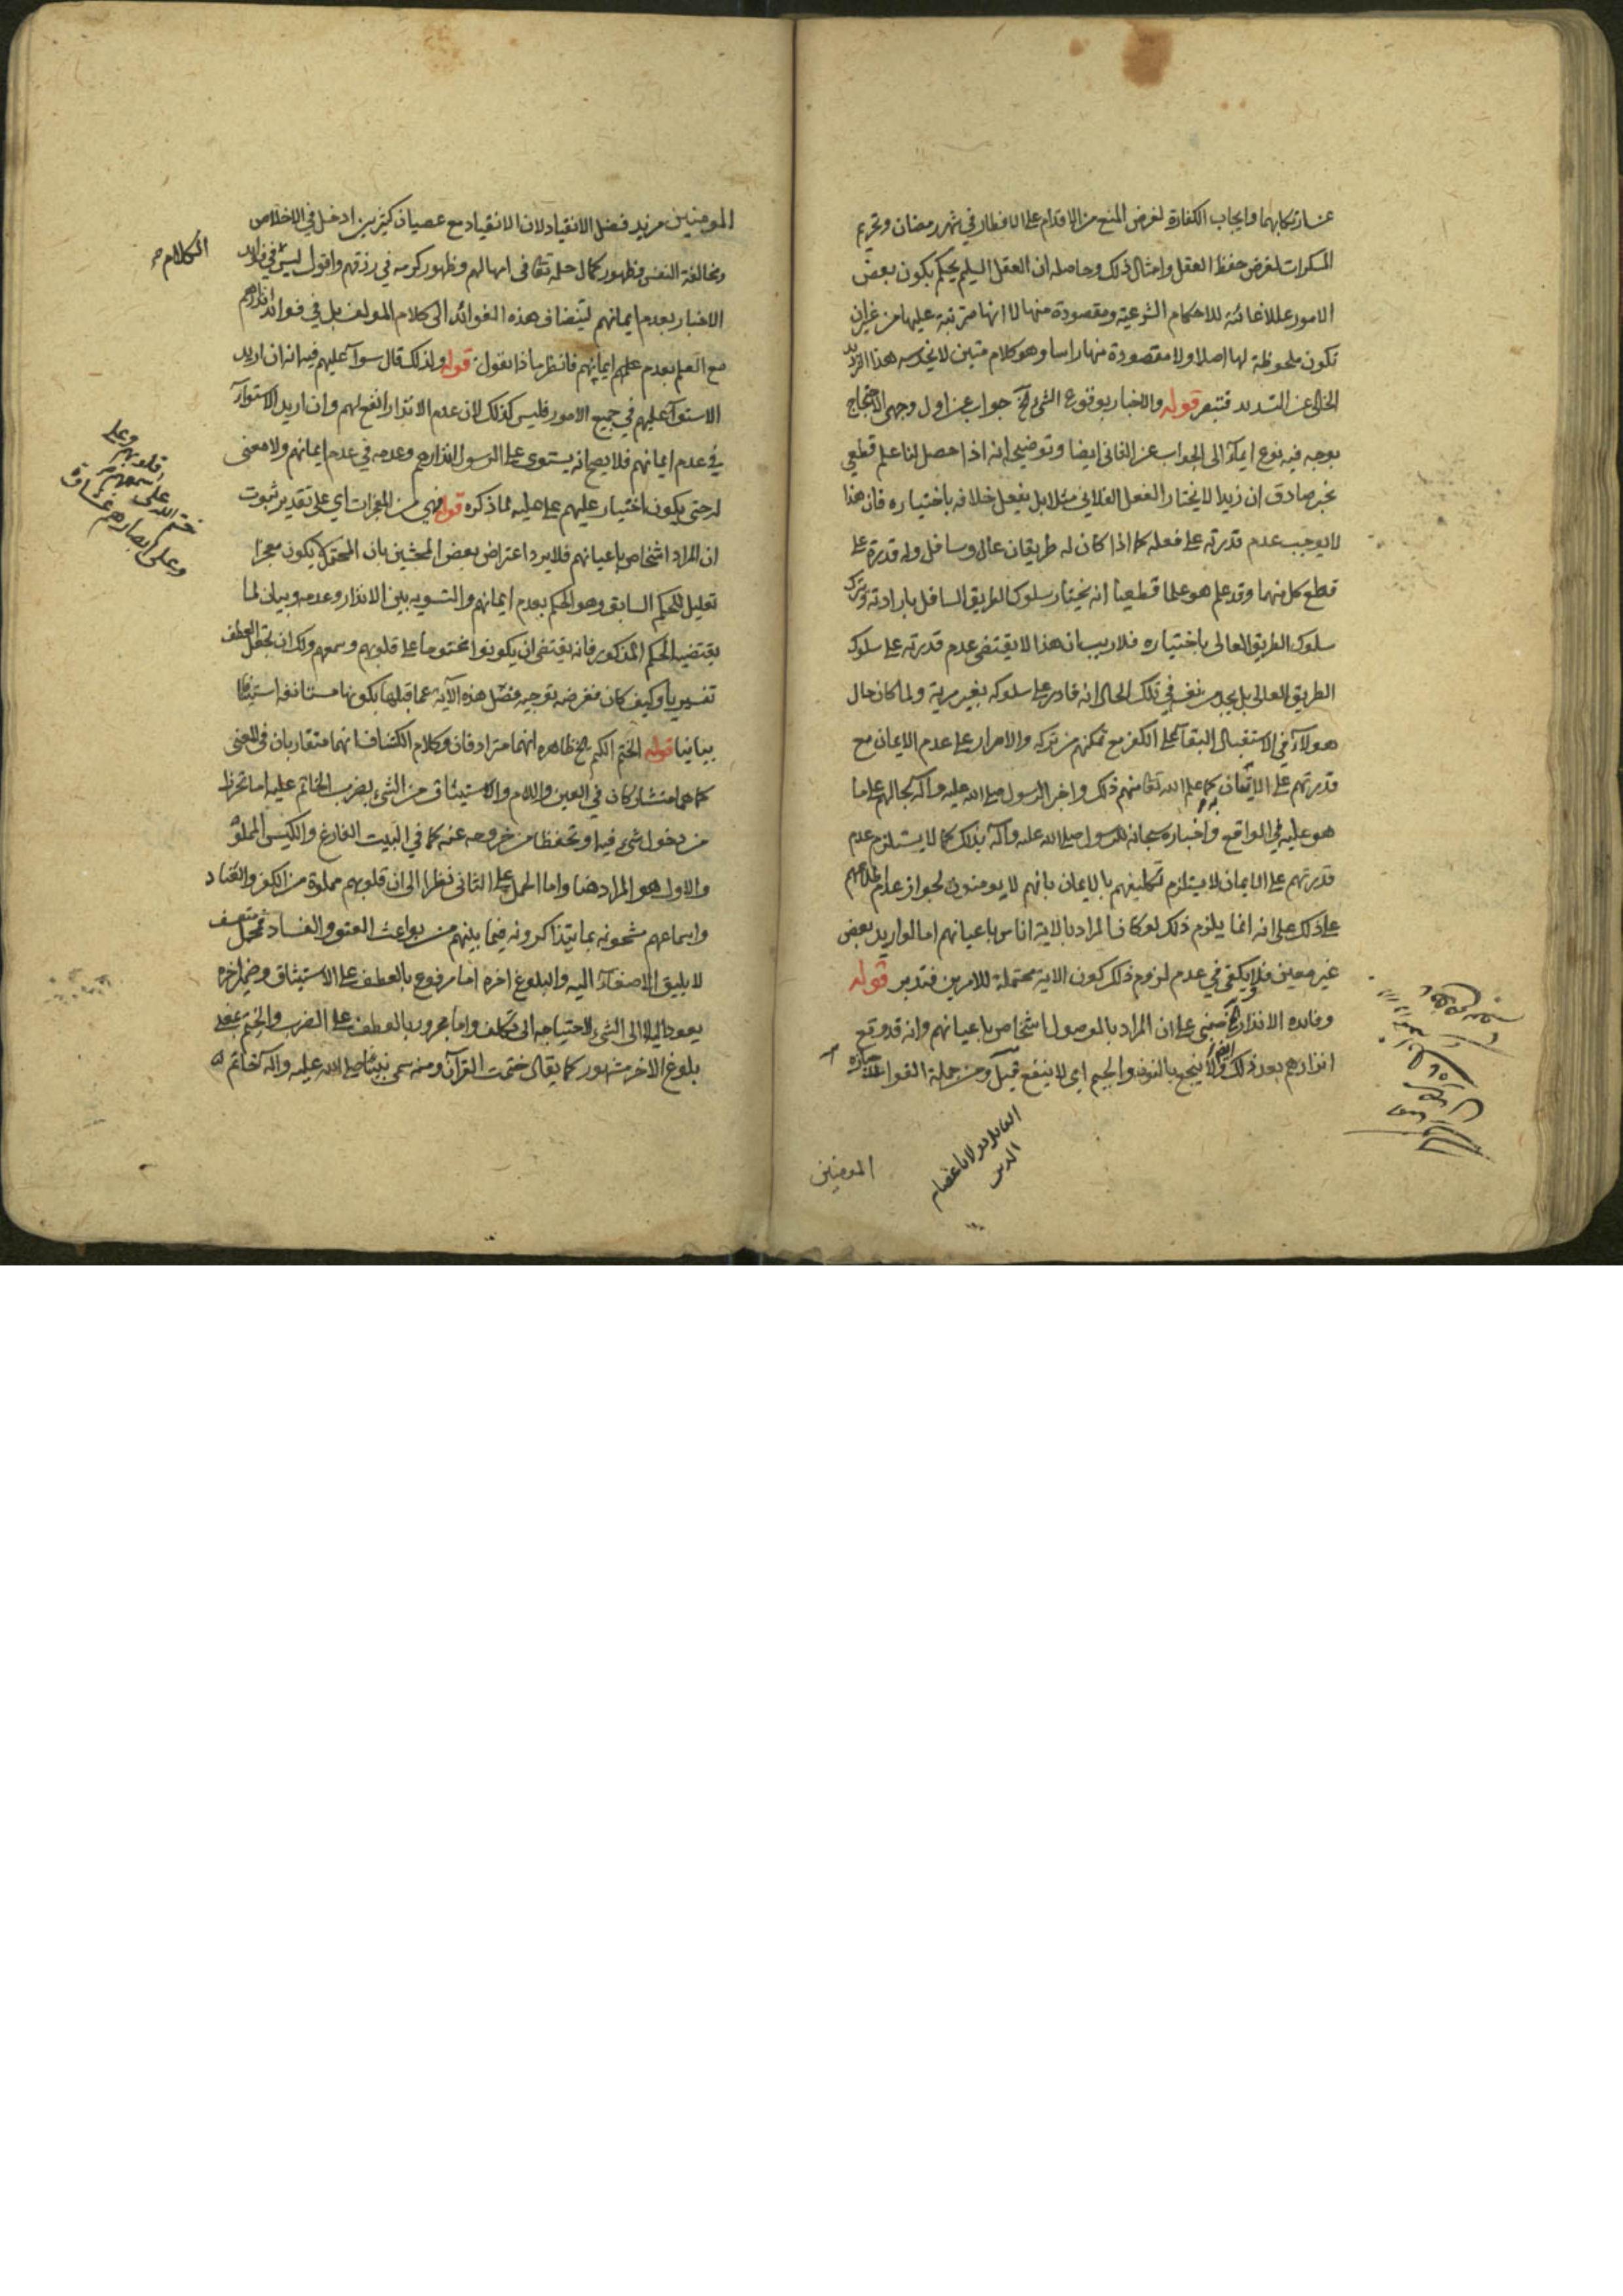 عن ارتكابهما وايجاب الكفارة لغرض المنع من الاقدام على الافطار في شهر رمضان وتحريم
المسكرات لغرض حفظ العقل وامثال ذلك وحاصله ان العقل السليم يحكم بكون بعض
الامور عللا غائية للاحكام الشرعية ومقصودة منها لا انها مترتبة عليها من غير ان
تكون ملحوظة لها اصلا ولا مقصودة منها راسا وهو كلام متين لا يخدشه هذا
الخالي عن التسديد فتبصر قوله والاخبار بوقوع الشيء الخ جواب عن اول وجهي الاحتجاج
بوجه فيه نوع ايماء الى الجواب عن الثاني ايضا وتوضيحه انه اذا حصل لنا علم قطعي
بخبر صادق ان زيدا لا يختار الفعل الفلاني مثلا بل يفعل خلافه باختياره فان هذا
لا يوجب عدم قدرته على فعله كما اذا كان له طريقان عال وسافل وله قدرة على
قطع كل منهما وقد علم هو علما قطعيا انه يختار سلوك الطريق السافل بارادته وترك
سلوك الطريق العالي باختياره فلا ريب ان هذا لا يقتضى عدم قدرته على سلوك
الطريق العالي بل يجد من نفسه في تلك الحال انه قادر على سلوكه بغير مرية ولما كان حال
هولاء في الاستقبال البقاء على الكفر مع تمكنهم من تركه والاصرار على عدم الايمان مع
قدرتهم على الايمان علم الله تعالى منهم ذلك واخبر الرسول صلى الله عليه وآله بحالهم على ما
هو عليه في الواقع واخباره سبحانه للرسول صلى الله عليه وآله بذلك كما لا يستلزم عدم
قدرتهم على الايمان لا يستلزم تكليفهم بالايمان بانهم لا يومنون لجواز عدم اطلاعهم
على ذلك على انه انما يلزم ذلك لو كان المراد بالاية اناس باعيانهم اما لو اريد بعض
غير معين فلا ويكفي في عدم لزوم ذلك كون الاية محتملة للامرين فتدبر قوله
وفائدة الانذار الخ مبني على ان المراد بالموصول اشخاص باعيانهم وانه قد وقع
انذارهم بعد ذلك ولا ينجع بالنون والجيم اي لا ينفع قيل ومن جملة الفوائد
المومنين
المومنين مزيد فضل الانقياد لان الانقياد مع عصيان كثيرين ادخل في الاخلاص
ومخالفة النفس وظهور كمال حلمه تعالى في امهالهم وظهور كرمه في رزقهم واقول ليس الكلام في فوائد
الاخبار بعدم ايمانهم ليضاف هذه الفوائد الى كلام المولف بل في فوائد انذارهم
مع العلم بعدم ايمانهم فانظر ماذا تقول قوله ولذلك قال سواء عليهم فيه انه ان اريد
الاستواء عليهم في جميع الامور فليس كذلك لان عدم الانذار انفع لهم وان اريد الاستواء
في عدم ايمانهم فلا يصح انه يستوى على الرسول انذارهم وعدمه في عدم ايمانهم ولا معنى
له حتى يكون اختيار عليهم على عليه لما ذكره قوله فهي من المعجزات اي على تقدير ثبوت
ان المراد اشخاص باعيانهم فلا يرد اعتراض بعض المحشين بان المحتمل لا يكون معجزا
تعليل للحكم السابق وهو الحكم بعدم ايمانهم والتسوية بين الانذار وعدمه وبيان لما
يقتضيه الحكم المذكور فانه يقتضى ان يكونوا مختوما على قلوبهم وسمعهم ولك ان تجعل العطف
تفسيريا وكيف كان فغرضه توجيه فصل هذه الآية عما قبلها بكونها مستانفة استينافا
بيانيا قوله الختم الكتم الخ ظاهره انهما مترادفان وكلام الكشاف انهما متقاربان في المعنى
كما هما متشاركان في العين واللام والاستيثاق من الشيء بضرب الخاتم عليه اما تحرزا
من دخول شيء فيه او تحفظا من خروجه عنه كما في البيت الفارغ والكيس المملو
والاول هو المراد هنا واما الحمل على الثاني نظرا الى ان قلوبهم مملوة من الكفر والعناد
واسماعهم مشحونة بما يتذاكرونه فيما بينهم من بواعث العتو والفساد فمحل متعسف
لا يليق الاصغاء اليه والبلوغ اخره اما مرفوع بالعطف على الاستيثاق وضمير اخره
يعود اليه لا الى الشيء لاحتياجه الى تكلف واما مجرور بالعطف على الضرب والختم بمعنى
بلوغ الاخر مشهور كما يقال ختمت القرآن ومنه سمى نبينا صلى الله عليه وآله خاتم
الكلام
ختم الله على قلوبهم وعلى
سمعهم
وعلى ابصارهم غشاوة